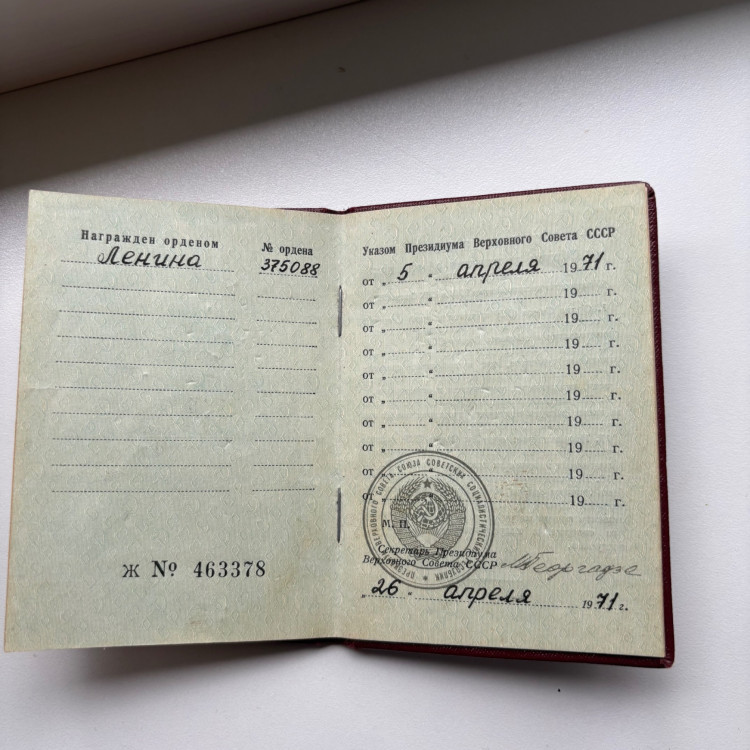 Награжден орденом
№ ордена
Ленина
375088
Ж № 463378
Указом Президиума Верховного Совета СССР
от „ 5 “ апреля 1971 г.
от „ “ 19 г.
от „ “ 19 г.
от „ “ 19 г.
от „ “ 19 г.
от „ “ 19 г.
от „ “ 19 г.
от „ “ 19 г.
от „ “ 19 г.
от „ “ 19 г.
М. П.
Секретарь Президиума
Верховного Совета СССР
М Георгадзе
„ 26 “ апреля 1971 г.
ВЕРХОВНОГО СОВЕТА СОЮЗА СОВЕТСКИХ СОЦИАЛИСТИЧЕСКИХ